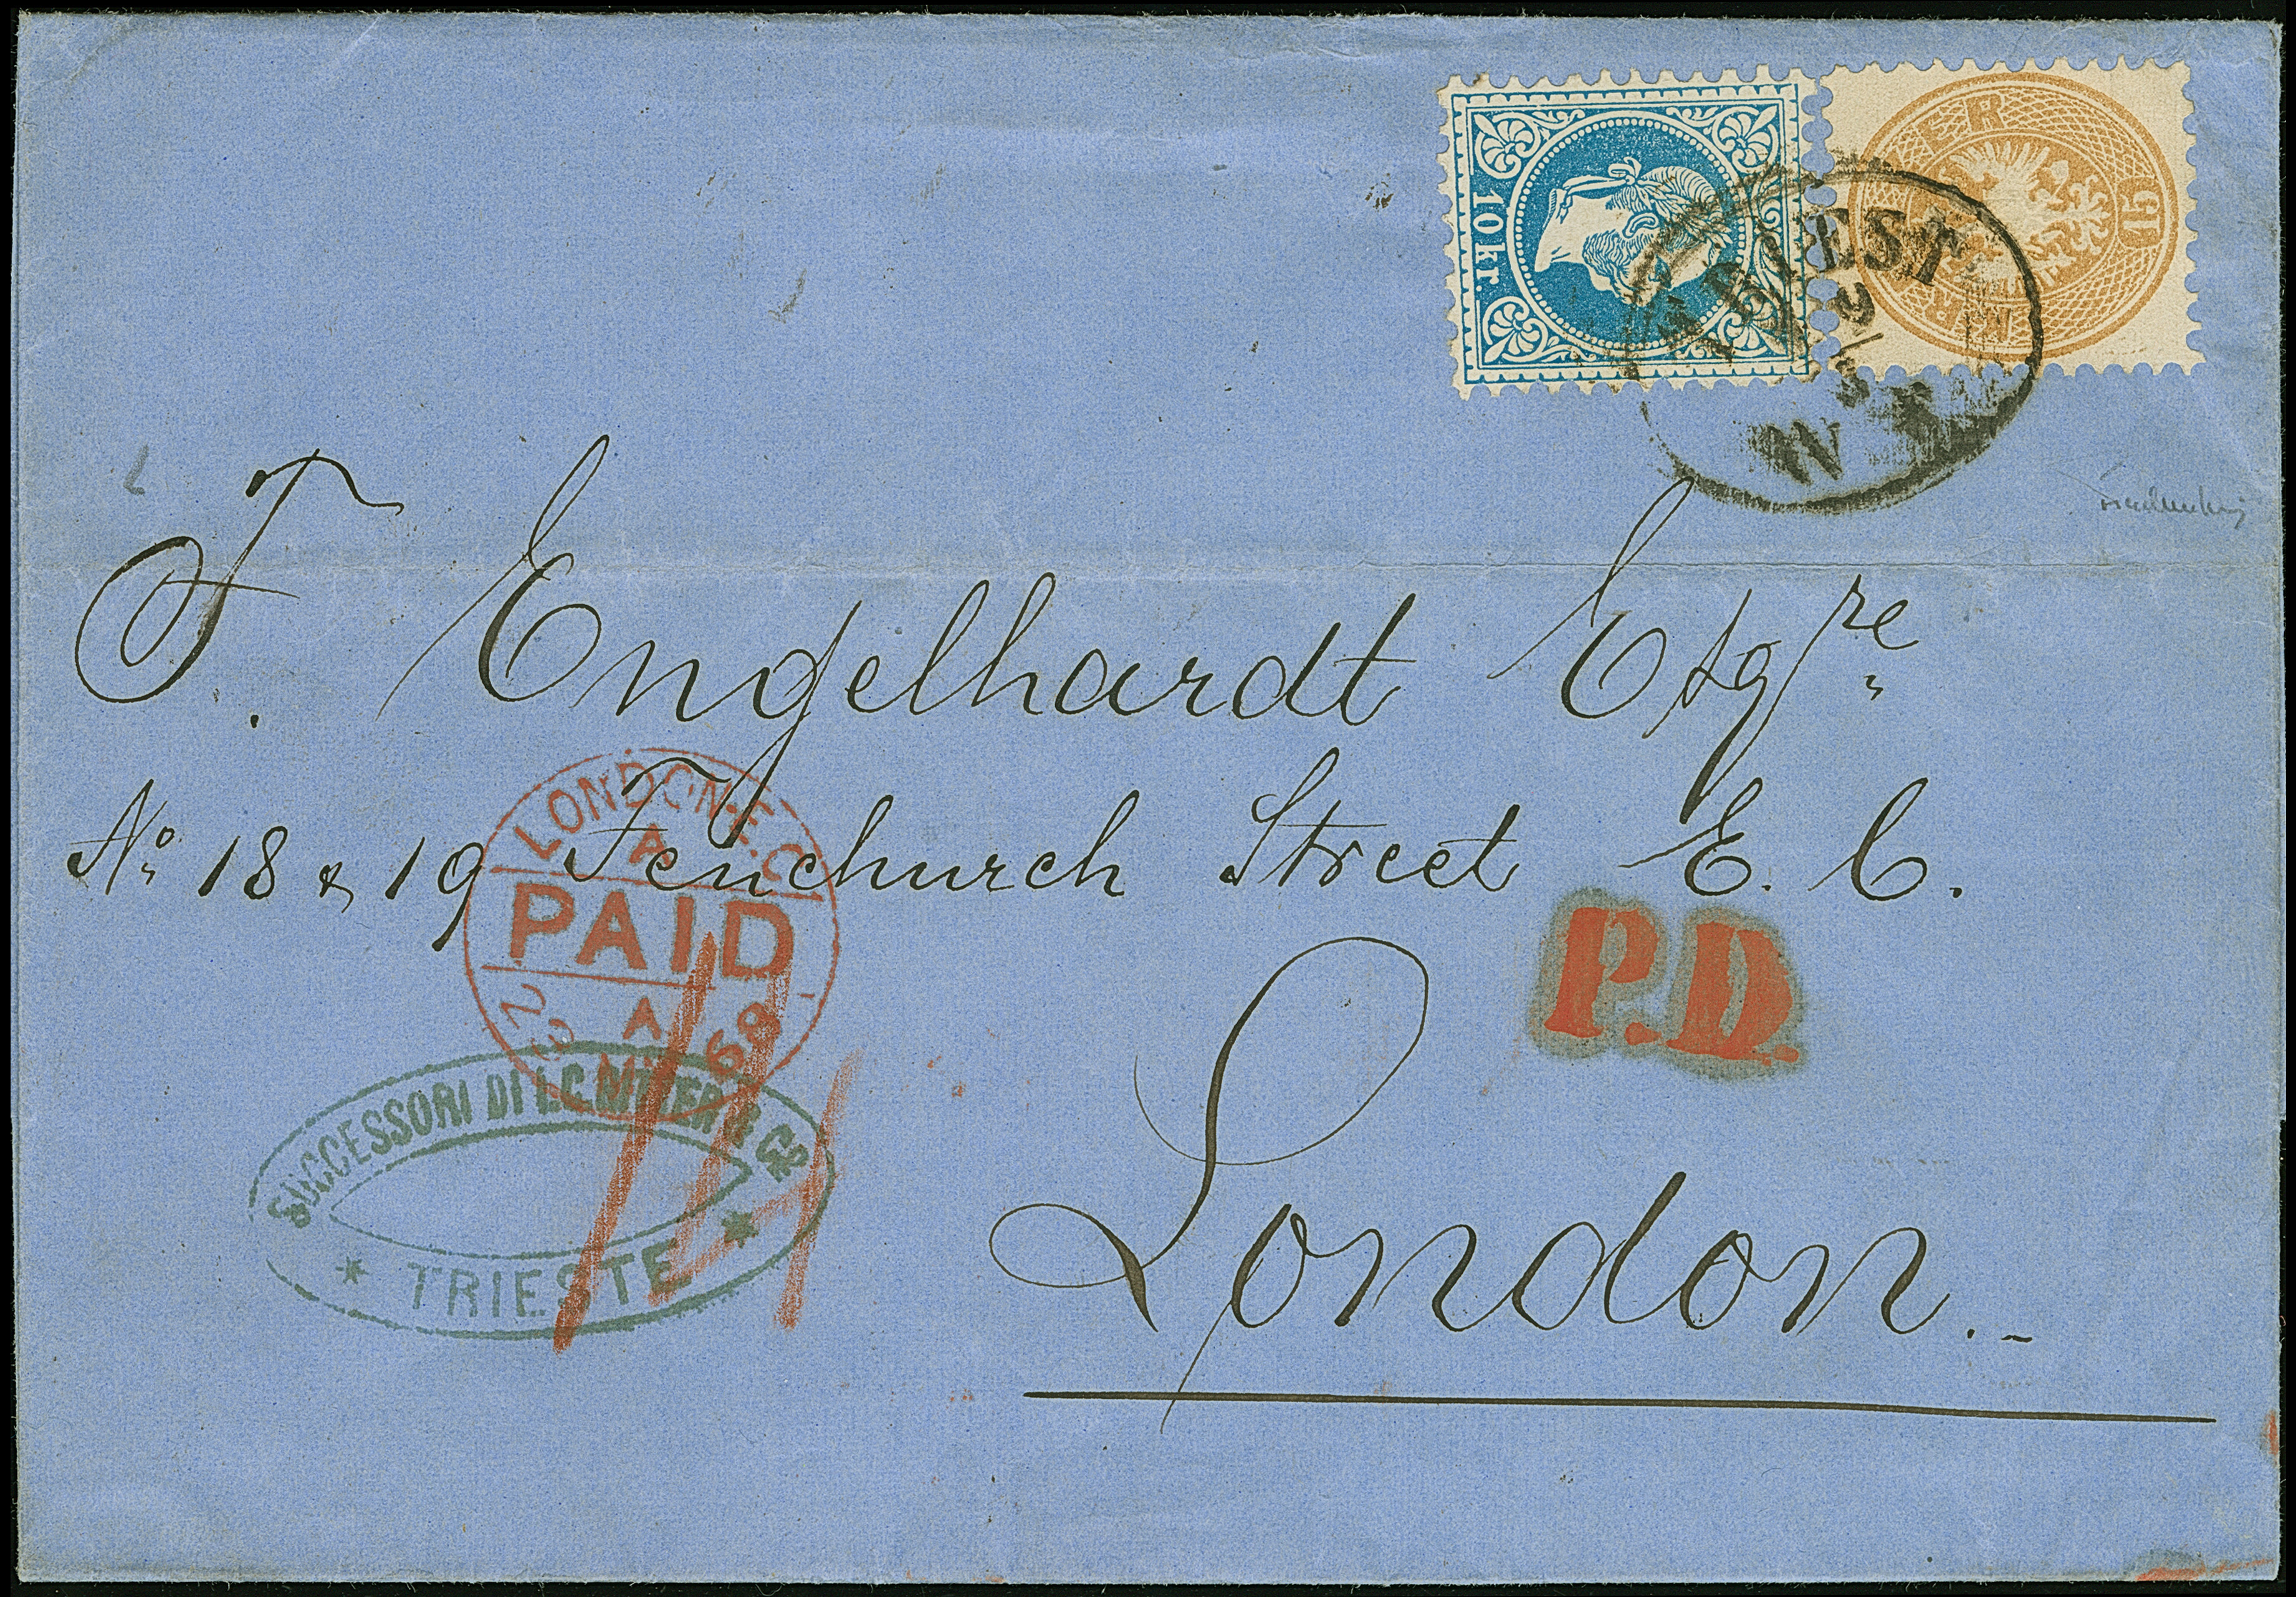 10 kr.
15
TRIEST
9/3
N
F. Engelhardt Esqre
No. 18 & 19 Fenchurch Street E. C.
London.
LONDON.E.C
A
PAID
A
68
P.D.
SUCCESSORI DI
& Co
* TRIESTE *